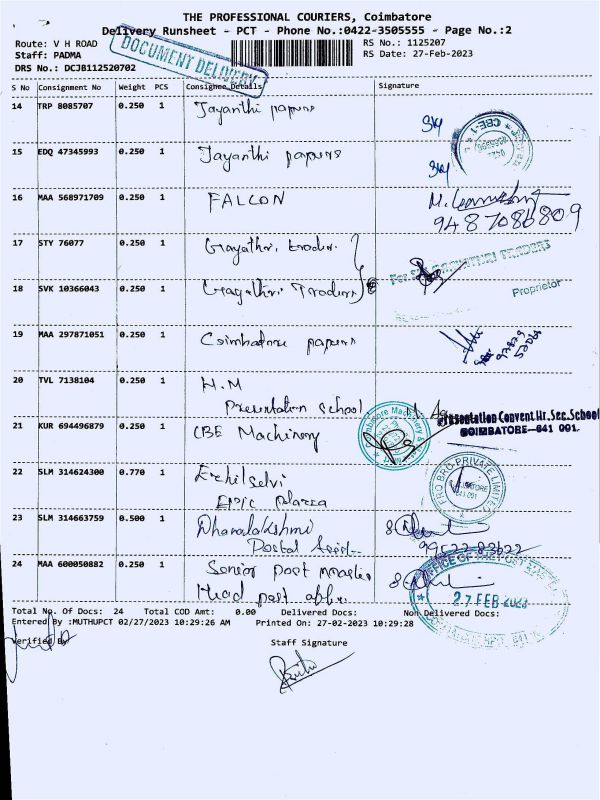 THE PROFESSIONAL COURIERS, Coimbatore
Delivery Runsheet - PCT - Phone No.:0422-3505555 - Page No.:2
Route: V H ROAD
Staff: PADMA
DRS No.: DCJB112520702
DOCUMENT DELIVERY
RS No.: 1125207
RS Date: 27-Feb-2023
S No Consignment No Weight PCS Consignee Details Signature
14 TRP 8085707 0.250 1 Jayanthi papers
15 EDQ 47345993 0.250 1 Jayanthi papers
CBE-1
16 MAA 568971709 0.250 1 FALCON
9487086809
17 STY 76077 0.250 1 Gayathri traders
18 SVK 10366043 0.250 1 Gayathri Traders
TRADERS
Proprietor
19 MAA 297871051 0.250 1 Coimbatore papers
20 TVL 7138104 0.250 1 H.M
Presentation School
Presentation Convent Hr. Sec. School
COIMBATORE-641 001.
21 KUR 694496879 0.250 1 CBE Machinery
Coimbatore Machinery &
22 SLM 314624300 0.770 1 Ezhilselvi
EPIC Plazza
PRO BRO PRIVATE LIMITED
COIMBATORE
641 001
23 SLM 314663759 0.500 1 Dhanalakshmi
Postal Assist
99522 83622
24 MAA 600050882 0.250 1 Senior post master
Head post
OFFICE OF
27 FEB 2023
Total No. Of Docs: 24 Total COD Amt: 0.00 Delivered Docs: Non Delivered Docs:
Entered By :MUTHUPCT 02/27/2023 10:29:26 AM Printed On: 27-02-2023 10:29:28
Verified By
Staff Signature